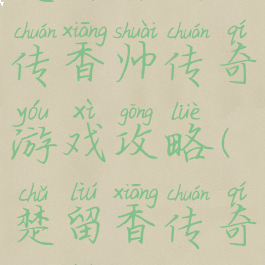 chuán xiāng shuài chuán qí
传香帅传奇
yóu xì gōng lüè
游戏攻略(
chǔ liú xiāng chuán qí
楚留香传奇